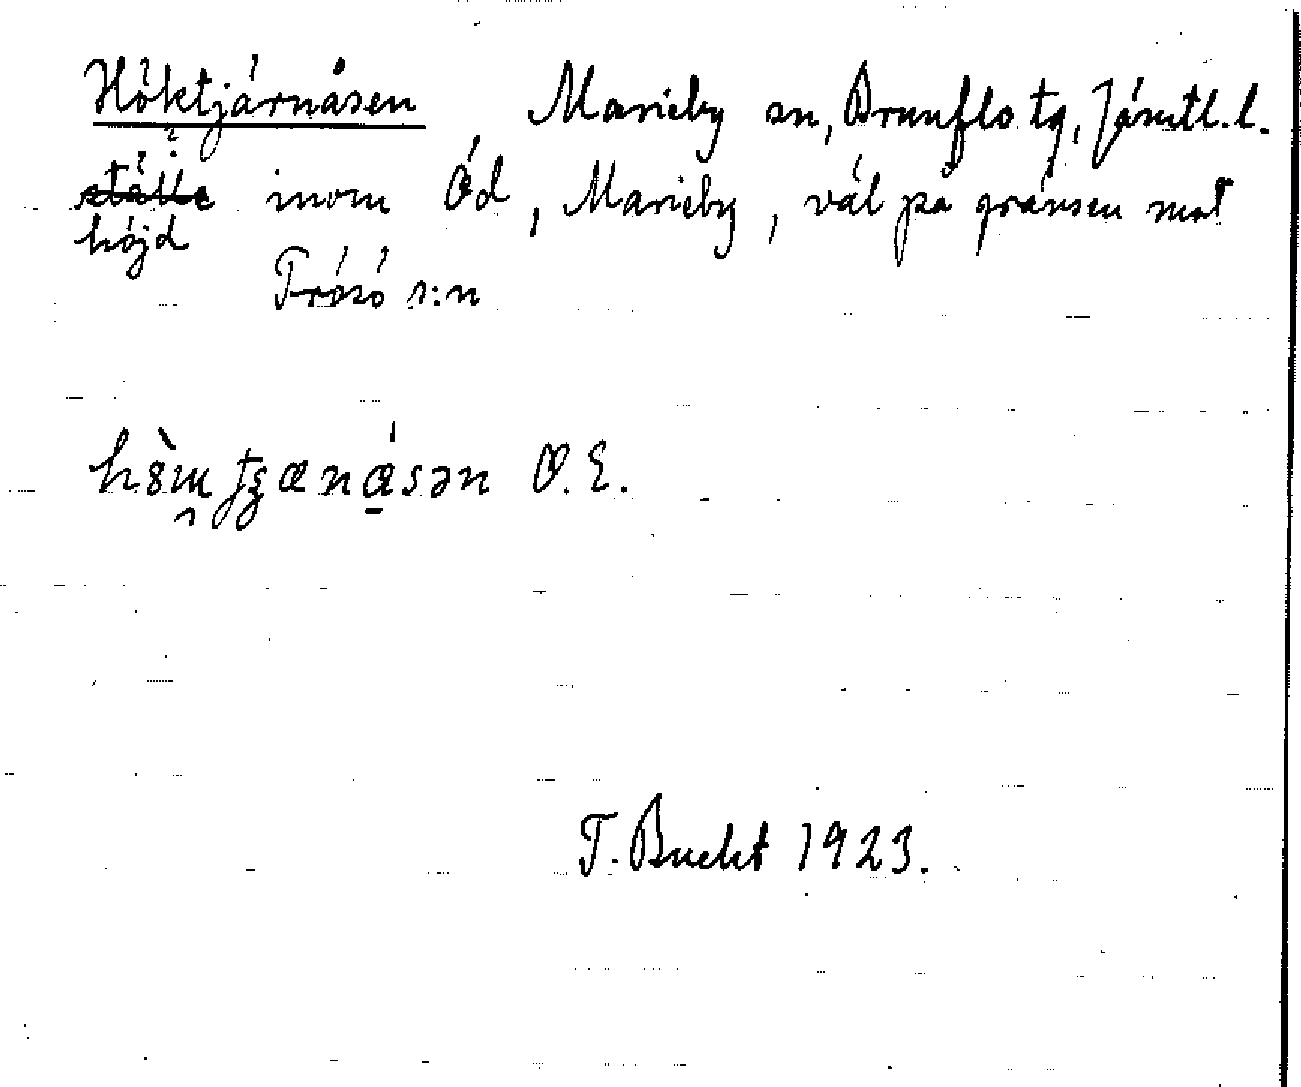 Höktjärnåsen, Marieby sn, Brunflo tg, Jämtl. l.
ställe ? inom Öd, Marieby, väl på gränsen mot
höjd
Frösö s:n
O. E.
T. Bucht 1923.